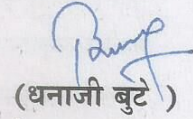 (धनाजी बुटे )